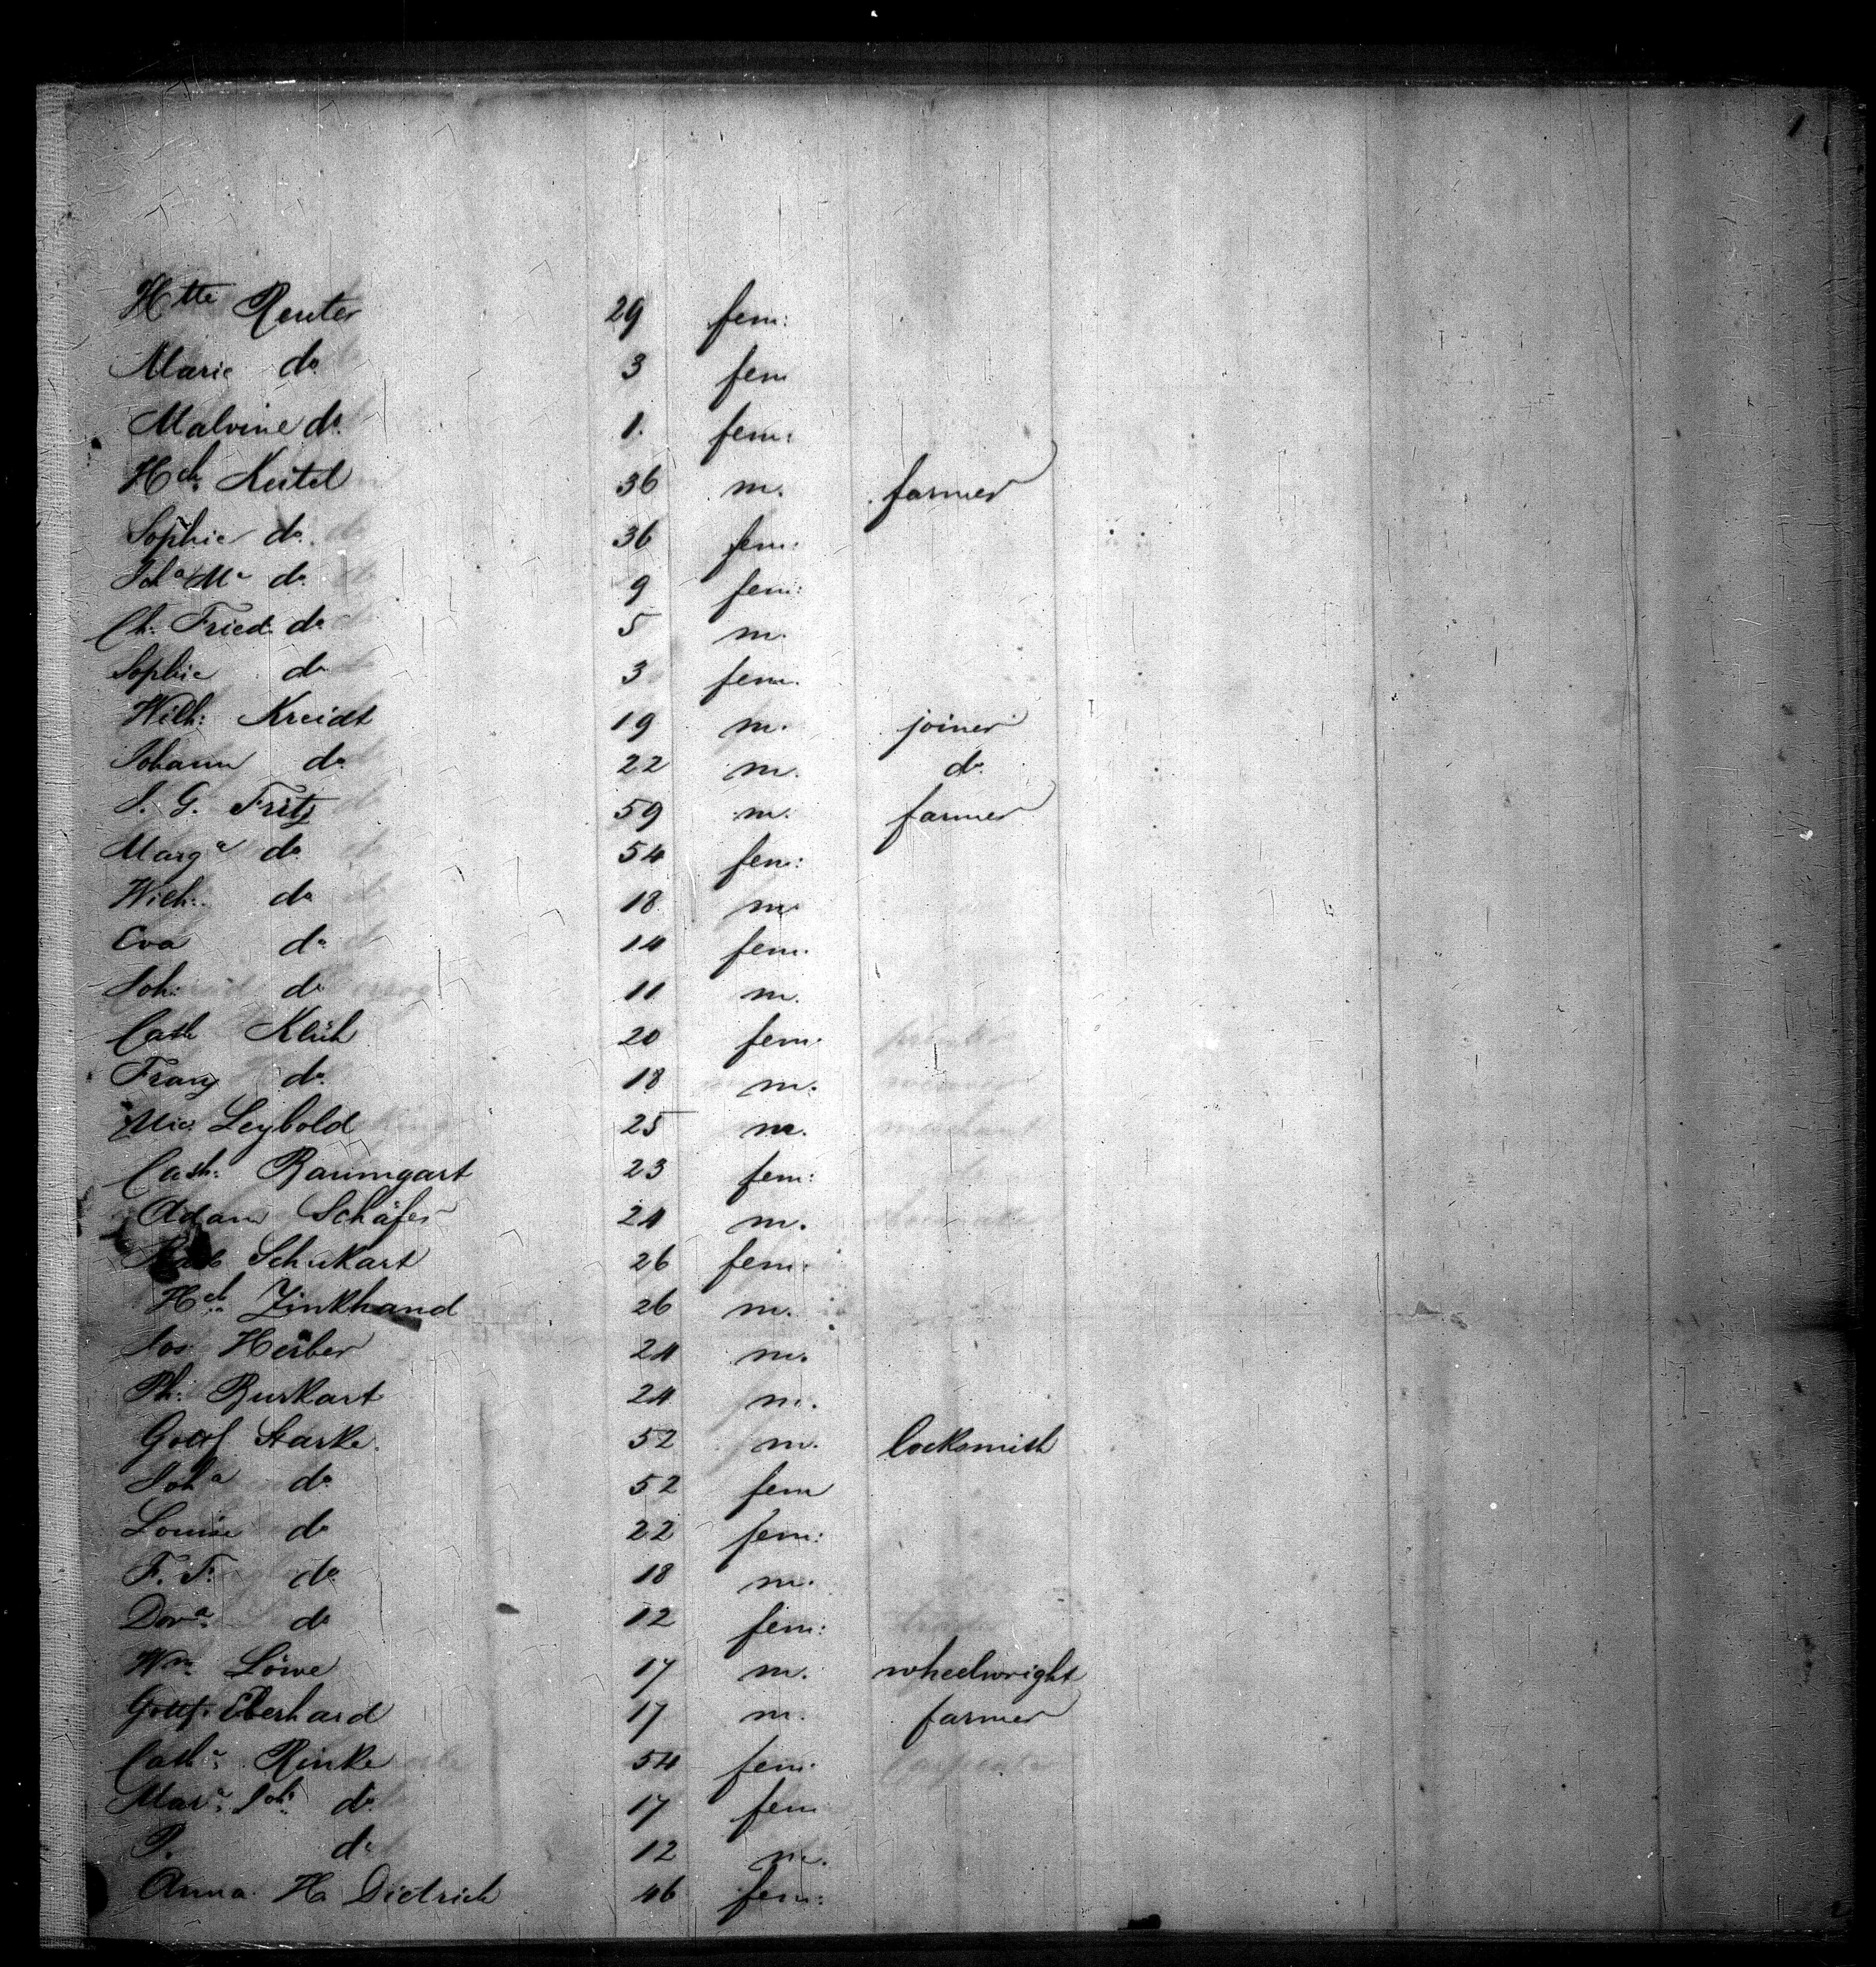 1
Htte Reuter 29 fem:
Marie do 3 fem
Malvine do. 1. fem:
Hch. Keitel 36 m. farmer
Sophie do. 36 fem:
Joha Ma do. 9 fem:
Ch: Fried. do 5 m.
Sophie do 3 fem.
Wilh: Kreidt 19 m. joiner
Johann do. 22 m. do.
J. G. Fritz 59 m. farmer
Marga do. 54 fem:
Wilh: do 18. m
Eva do. 14 fem.
Joh: do 11 m.
Cath Klüh 20 fem.
Franz do. 18 m.
Nic. Leybold 25 m.
Cath: Baumgart 23 fem:
Adam Schäfer 24 m.
Schukart 26 fem:
Hch. Zinkhand 26 m.
Jos. Herber 24 m.
Ph: Burkart 24 m.
Gottf Starke. 52 m. locksmith
Joha do. 52 fem
Louise do 22 fem:
F. F. do. 18 m.
Dora. do 12 fem:
Wm. Löwe 17 m. wheelwright
Gottf. Eberhard 17 m. farmer
Catha. Rinke 54 fem.
Mara. Joh. do. 17 fem
P. do. 12 m.
Anna. H. Dietrich 46 fem: